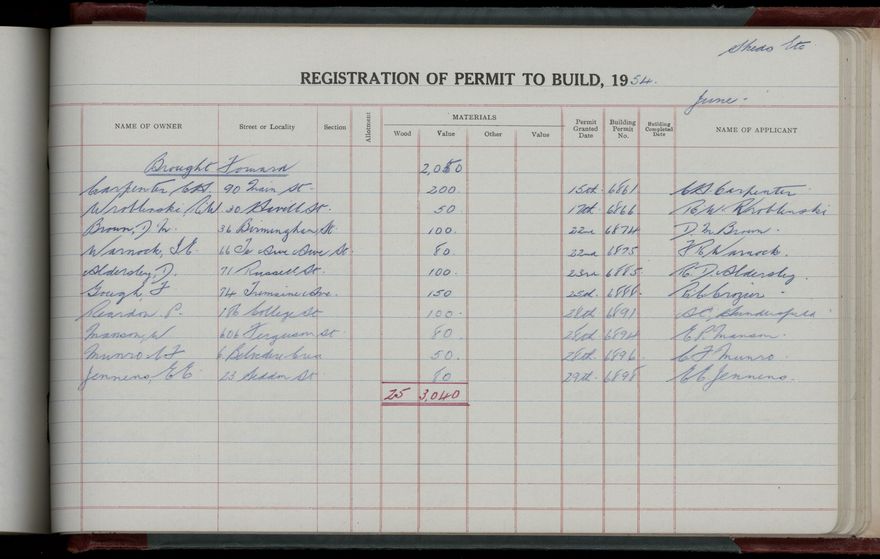 Sheds Etc
REGISTRATION OF PERMIT TO BUILD, 1954.
June -
MATERIALS
NAME OF OWNER Street or Locality Section Allotment Wood Value Other Value Permit Granted Date Building Permit No. Building Completed Date NAME OF APPLICANT
Brought Forward 2,080
Carpenter, 90 Main St. 200. 15th. 6861 Carpenter
Wroblenski, 30 St. 50. 17th. 6866 Wroblenski
Brown, D. M. 36 Birmingham St. 100. 22nd 6874 D. M. Brown.
Warnock, 66 Te Awe Awe St. 80. 22nd 6875 Warnock.
Aldersley, D. 71 Russell St. 100. 23rd 6885. D. Aldersley.
Gough, F 74 Tremaine Ave. 150 25th. 6888. Crozier
Reardon. P. 186 College St 100. 28th 6891
Manson, W 606 Ferguson St 80. 28th 6894 E. P. Manson.
Munro C F 6 Cres 50. 28th. 6896. C F Munro.
Jennens, E E. 23 Seddon St 80 29th. 6898 E E Jennens.
25 3,040